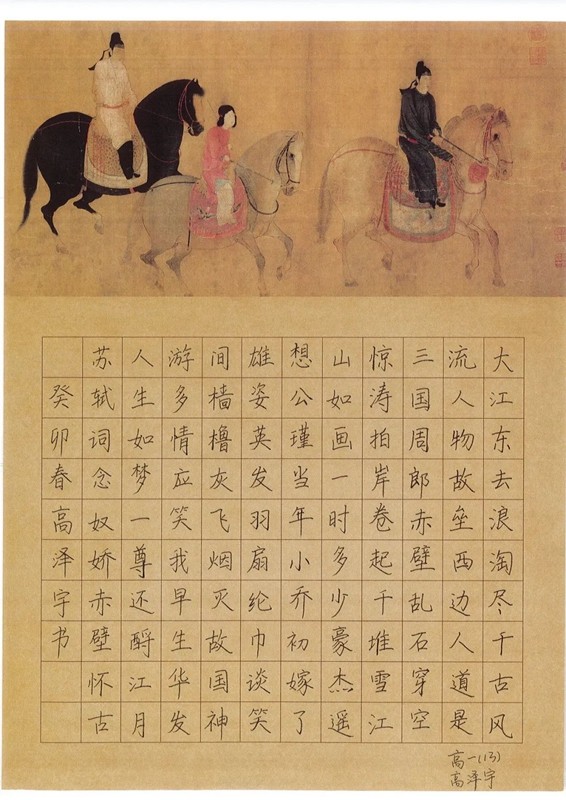 大江东去浪淘尽千古风
流人物故垒西边人道是
三国周郎赤壁乱石穿空
惊涛拍岸卷起千堆雪江
山如画一时多少豪杰遥
想公瑾当年小乔初嫁了
雄姿英发羽扇纶巾谈笑
间樯橹灰飞烟灭故国神
游多情应笑我早生华发
人生如梦一尊还酹江月
苏轼词念奴娇赤壁怀古
癸卯春高泽宇书
高一(13)
高泽宇